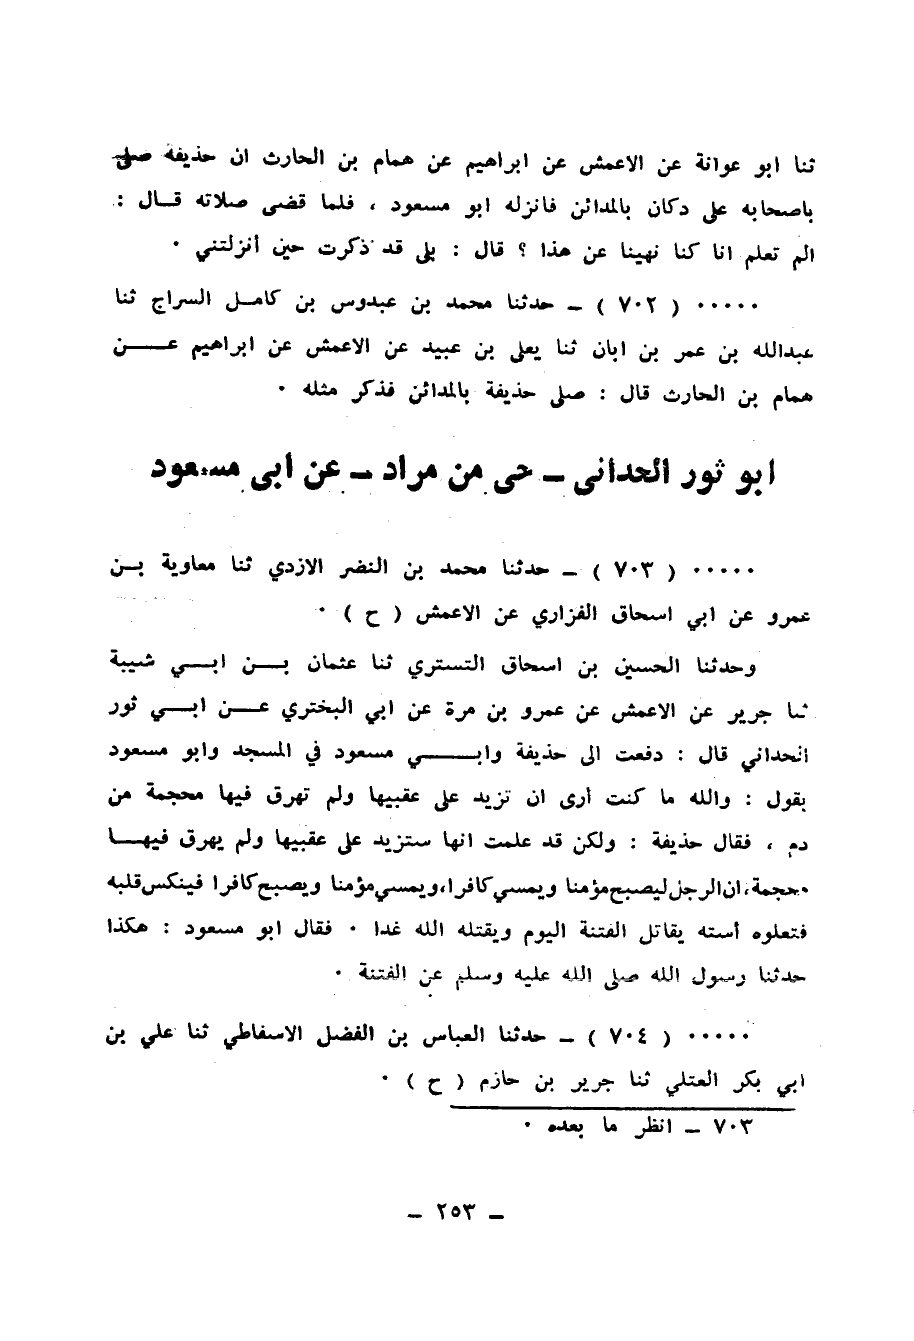 ثنا ابو عوانة عن الاعمش عن ابراهيم عن همام بن الحارث ان حذيفة صلى
باصحابه على دكان بالمدائن فانزله ابو مسعود ، فلما قضى صلاته قال :
الم تعلم انا كنا نهينا عن هذا ؟ قال : بلى قد ذكرت حين أنزلتني ·
····· ( ٧٠٢ ) ـ حدثنا محمد بن عبدوس بن كامل السراج ثنا
عبدالله بن عمر بن ابان ثنا يعلى بن عبيد عن الاعمش عن ابراهيم عن
همام بن الحارث قال : صلى حذيفة بالمدائن فذكر مثله ·
ابو ثور الحدانى ـ حى من مراد ـ عن أبى مسعود
····· ( ٧٠٣ ) ـ حدثنا محمد بن النضر الازدي ثنا معاوية بن
عمرو عن ابي اسحاق الفزاري عن الاعمش ( ح ) ·
وحدثنا الحسين بن اسحاق التستري ثنا عثمان بن ابي شيبة
ثنا جرير عن الاعمش عن عمرو بن مرة عن ابي البختري عن ابي ثور
الحداني قال : دفعت الى حذيفة وابي مسعود في المسجد وابو مسعود
يقول : والله ما كنت أرى ان تزيد على عقبيها ولم تهرق فيها محجمة من
دم ، فقال حذيفة : ولكن قد علمت انها ستزيد على عقبيها ولم يهرق فيها
محجمة، ان الرجل ليصبح مؤمنا ويمسي كافرا، ويمسي مؤمنا ويصبح كافرا فينكس قلبه
فتعلوه أسته يقاتل الفتنة اليوم ويقتله الله غدا · فقال ابو مسعود : هكذا
حدثنا رسول الله صلى الله عليه وسلم عن الفتنة ·
····· ( ٧٠٤ ) ـ حدثنا العباس بن الفضل الاسفاطي ثنا علي بن
ابي بكر العتلي ثنا جرير بن حازم ( ح ) ·
٧٠٣ ـ انظر ما بعده ·
ـ ٢٥٣ ـ